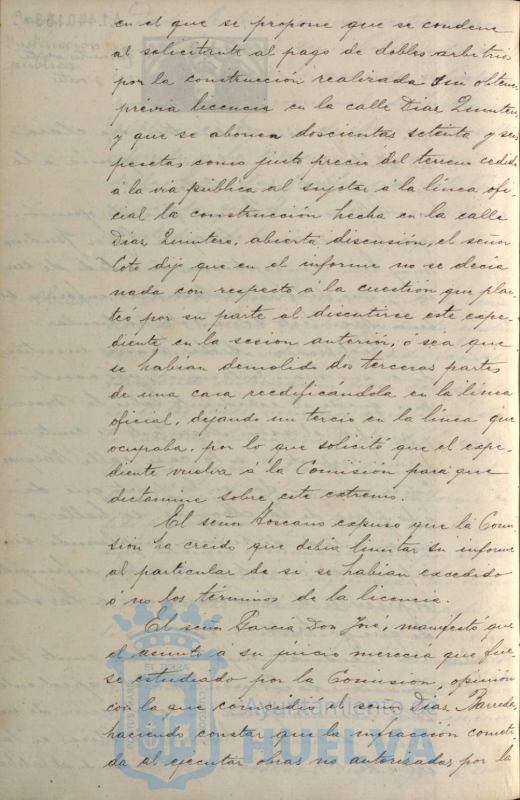 en el que se propone que se condene
al solicitante al pago de dobles arbitrios
por la construcción realizada sin obtener
prévia licencia en la calle Diaz Quintero,
y que se abonen doscientas setenta y seis
pesetas como justo precio del terreno cedido
á la via pública al sujetar á la línea ofi-
cial la construcción hecha en la calle
Diaz Quintero, abierta discusión, el señor
Coto dijo que en el informe no se decia
nada con respecto á la cuestión que plan-
teó por su parte al discutirse este expe-
diente en la sesion anterior, ó sea que
se habian demolido dos terceras partes
de una casa reedificándola en la línea
oficial, dejando un tercio en la línea que
ocupaba, por lo que solicitó que el expe-
diente vuelva á la Comisión para que
dictamine sobre este extremo.
El señor Toscano expuso que la Comi-
sión ha creido que debia limitar su informe
al particular de si se habian excedido
ó no los términos de la licencia.
El señor Garcia Don José, manifestó que
el asunto á su juicio merecia que fue-
se estudiado por la Comision, opinión
con la que coincidió el señor Diaz
haciendo constar que la infracción cometi-
da al ejecutar obras no autorizadas por la
Ayuntamiento de
HUELVA